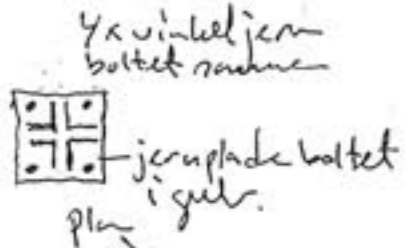 4x vinkeljern
boltet sammen
jernplade boltet
i gulv.
plan